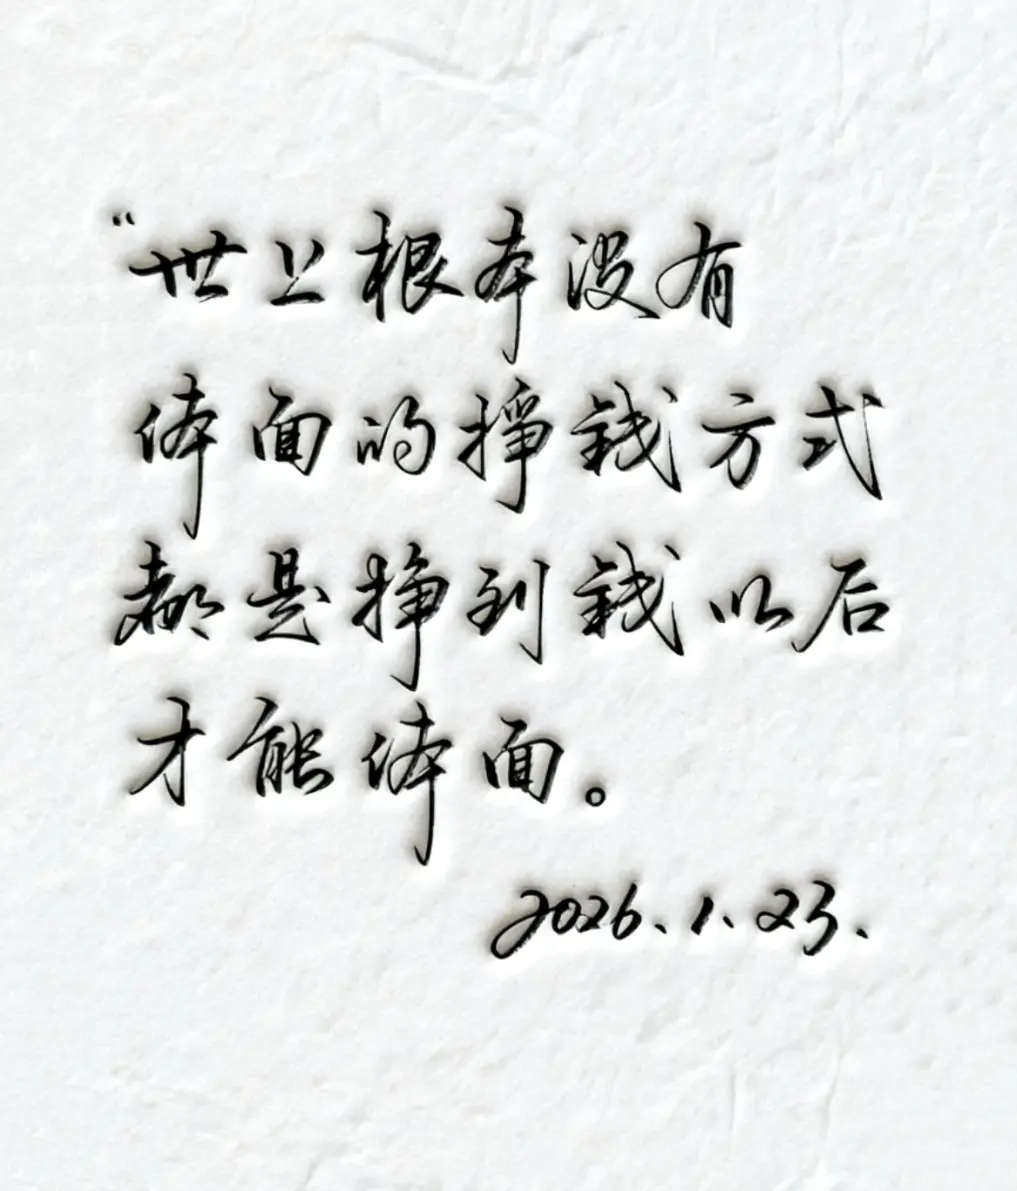 “世上根本没有
体面的挣钱方式
都是挣到钱以后
才能体面。
2026.1.23.